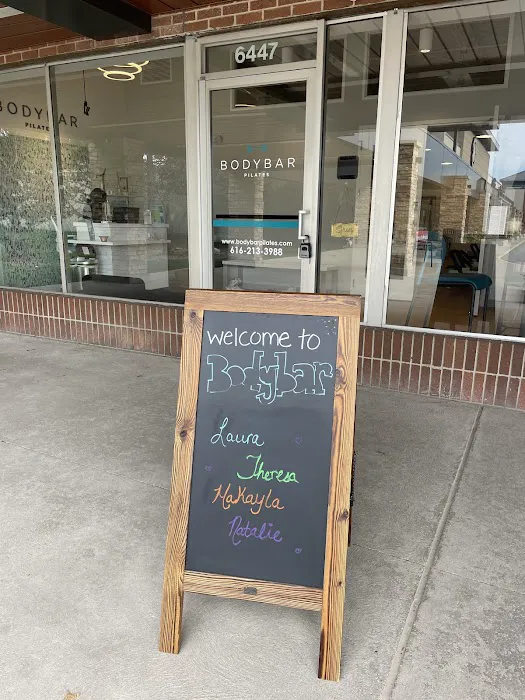 6447
BODYBAR
PILATES
BODYBAR
PILATES
www.bodybarpilates.com
616-213-3988
welcome to
Bodybar
Laura
Theresa
MaKayla
Natalie